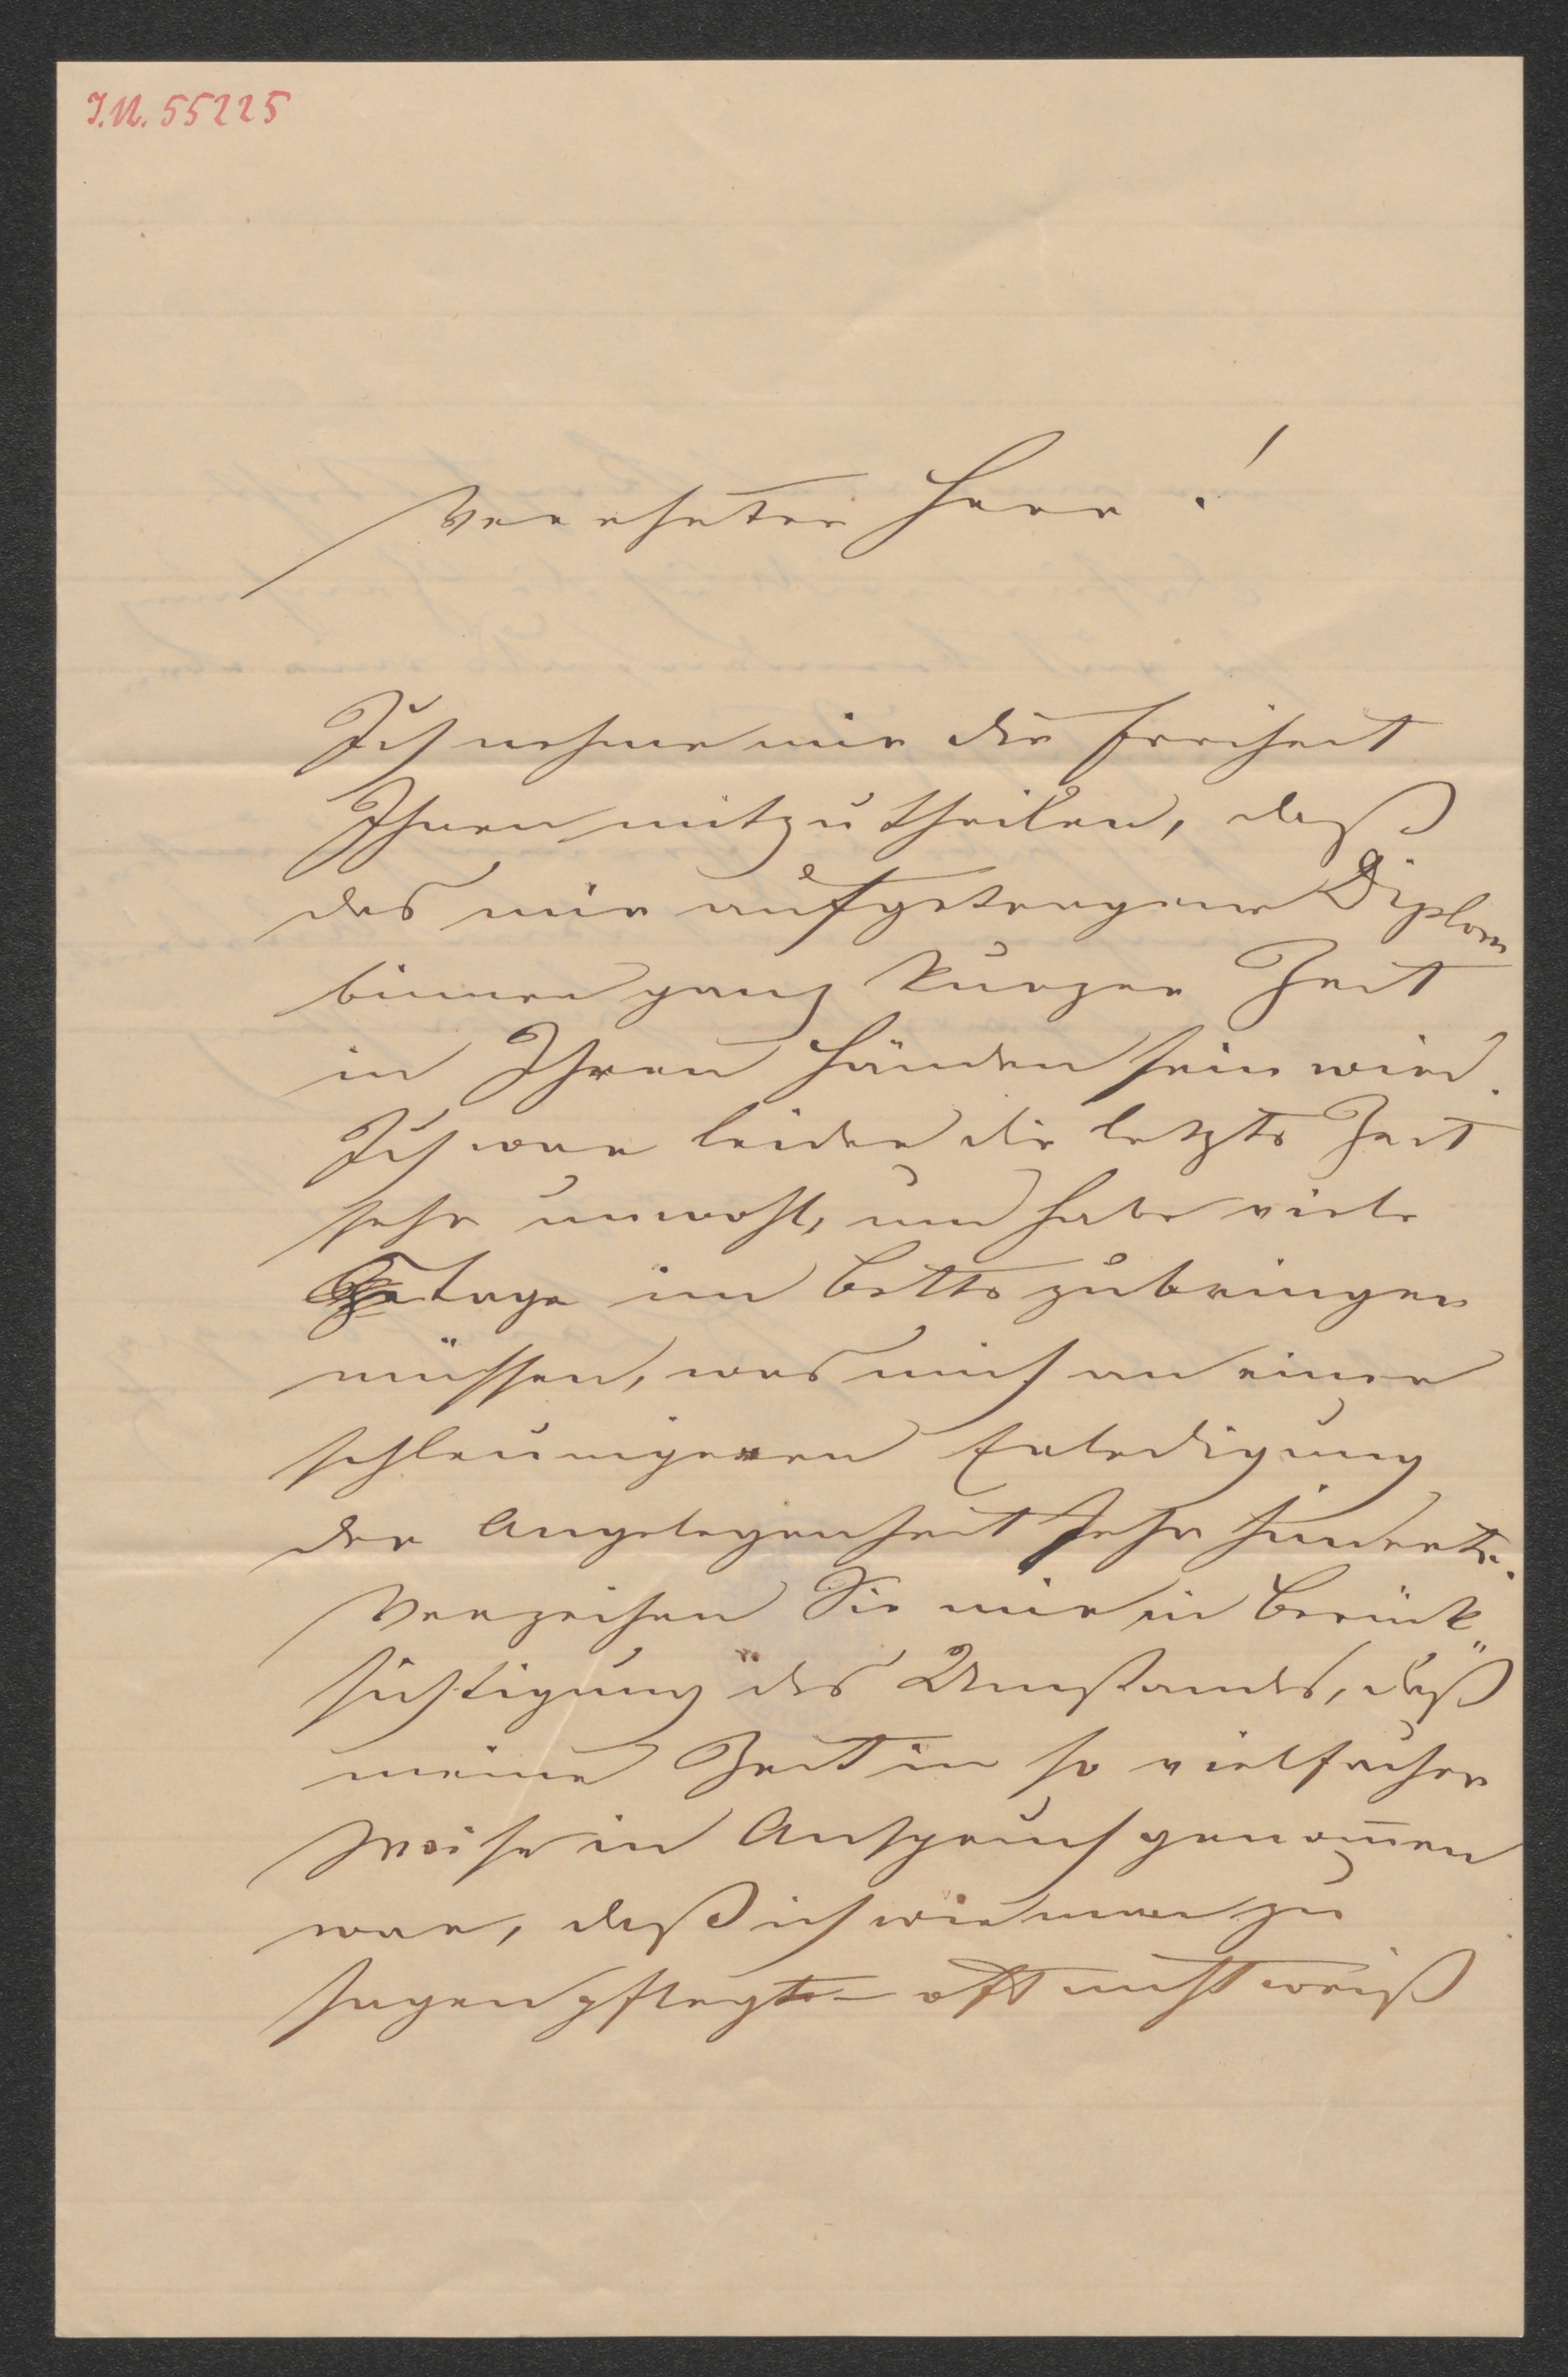 I.N. 55225
Verehrter Herr!
Ich nehme mir die Freiheit
Ihnen mitzutheilen, daß
das mir aufgetragene Diplom
binnen ganz kurzer Zeit
in Ihren Händen sein wird.
Ich war leider die letzte Zeit
sehr unwohl, und habe viele
Tage im Bette zubringen
müssen, was mich an einer
schleunigeren Erledigung
der Angelegenheit sehr hinderte.
Verzeihen Sie mir in Berück
sichtigung des Umstandes, daß
meine Zeit in so vielfacher
Weise in Anspruch genom̄en
war, daß ich wie man zu
sagen pflegt – oft nicht weiß